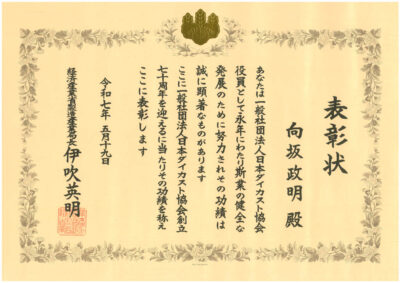 表彰状
向坂政明 殿
あなたは一般社団法人日本ダイカスト協会
役員として永年にわたり斯業の健全な
発展のために努力されその功績は
誠に顕著なものがあります
ここに一般社団法人日本ダイカスト協会創立
七十周年を迎えるに当たりその功績を称え
ここに表彰します
令和七年五月十九日
経済産業省製造産業局長 伊吹英明